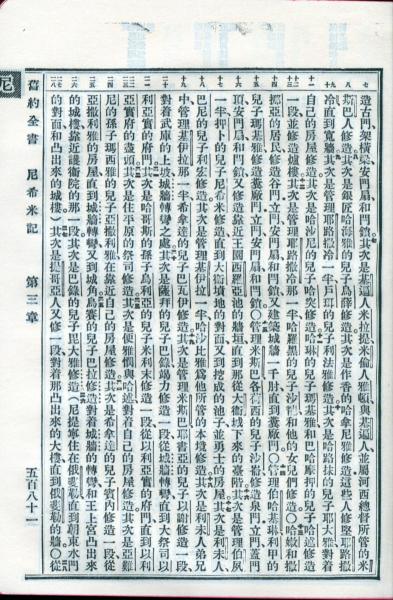 造古門架橫樑安門扇和門鎖其次是基遍人米拉提米倫人雅頓與基遍人並屬河西總督所管的米
斯巴人修造其次是銀匠哈海雅的兒子烏薛修造其次是作香的哈拿尼雅修造這些人修堅耶路撒
冷直到寬牆其次是管理耶路撒冷一半戶珥的兒子利法雅修造其次是哈路抹的兒子耶大雅對着
自己的房屋修造其次是哈沙尼的兒子哈突修造哈琳的兒子瑪基雅和巴哈摩押的兒子哈述修造
一段並修造爐樓其次是管理耶路撒冷那一半哈羅黑的兒子沙龍和他的女兒們修造○哈嫩和撒
挪亞的居民修造谷門立門安門扇和門鎖又建築城牆一千肘直到糞廠門○管理伯哈基琳利甲的
兒子瑪基雅修造糞廠門立門安門扇和門鎖○管理米斯巴各荷西的兒子沙崙修造泉門立門蓋門
頂安門扇和門鎖又修造靠近王園西羅亞池的牆垣直到那從大衛城下來的臺階其次是管理伯夙
一半押卜的兒子尼希米修造直到大衛墳地的對面又到挖成的池子並勇士的房屋其次是利未人
巴尼的兒子利宏修造其次是管理基伊拉一半哈沙比雅爲他所管的本境修造其次是利未人弟兄
中管理基伊拉那一半希拿達的兒子巴瓦伊修造其次是管理米斯巴耶書亞的兒子以謝修造一段
對着武庫的上坡城牆轉彎之處其次是薩拜的兒子巴錄竭力修造一段從城牆轉彎直到大祭司以
利亞實的府門其次是哈哥斯的孫子烏利亞的兒子米利末修造一段從以利亞實的府門直到以利
亞實府的盡頭其次是住平原的祭司修造其次是便雅憫與哈述對着自己的房屋修造其次是亞難
尼的孫子瑪西雅的兒子亞撒利雅在靠近自己的房屋修造其次是希拿達的兒子賓內修造一段從
亞撒利雅的房屋直到城牆轉彎又到城角烏賽的兒子巴拉修造對着城牆的轉彎和王上宮凸出來
的城樓靠近護衛院的那一段其次是巴錄的兒子毘大雅修造（尼提寧住在俄斐勒直到朝東水門
的對面和凸出來的城樓）其次是提哥亞人又修一段對着那凸出來的大樓直到俄斐勒的牆○從
舊約全書 尼希米記 第三章 五百八十一
尼